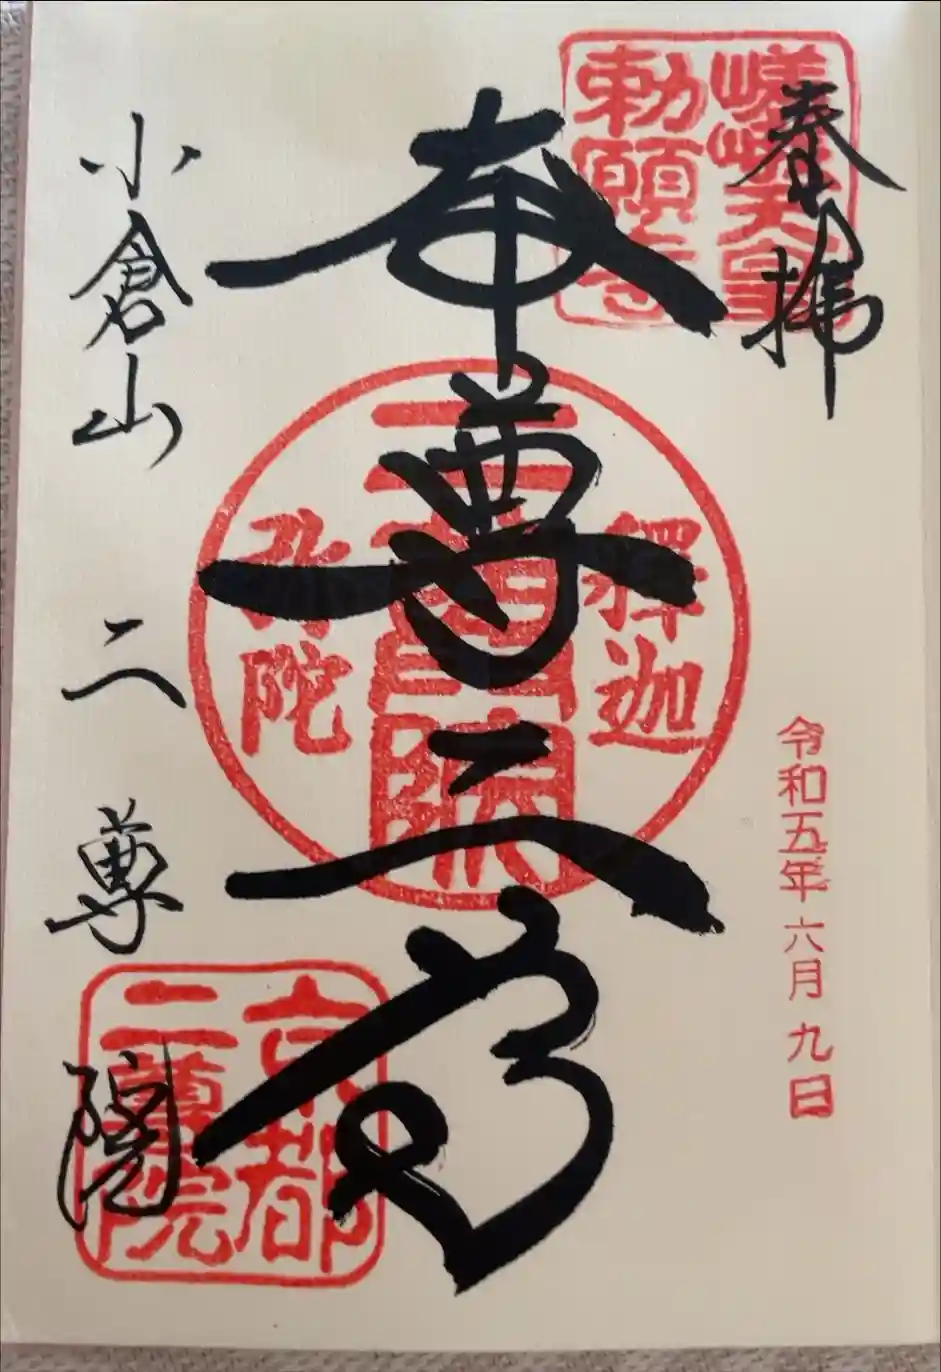 奉拝
嵯峨天皇
勅願寺
令和五年六月九日
本尊二尊
釋迦
二尊院
弥陀
小倉山 二尊院
京都
二尊院